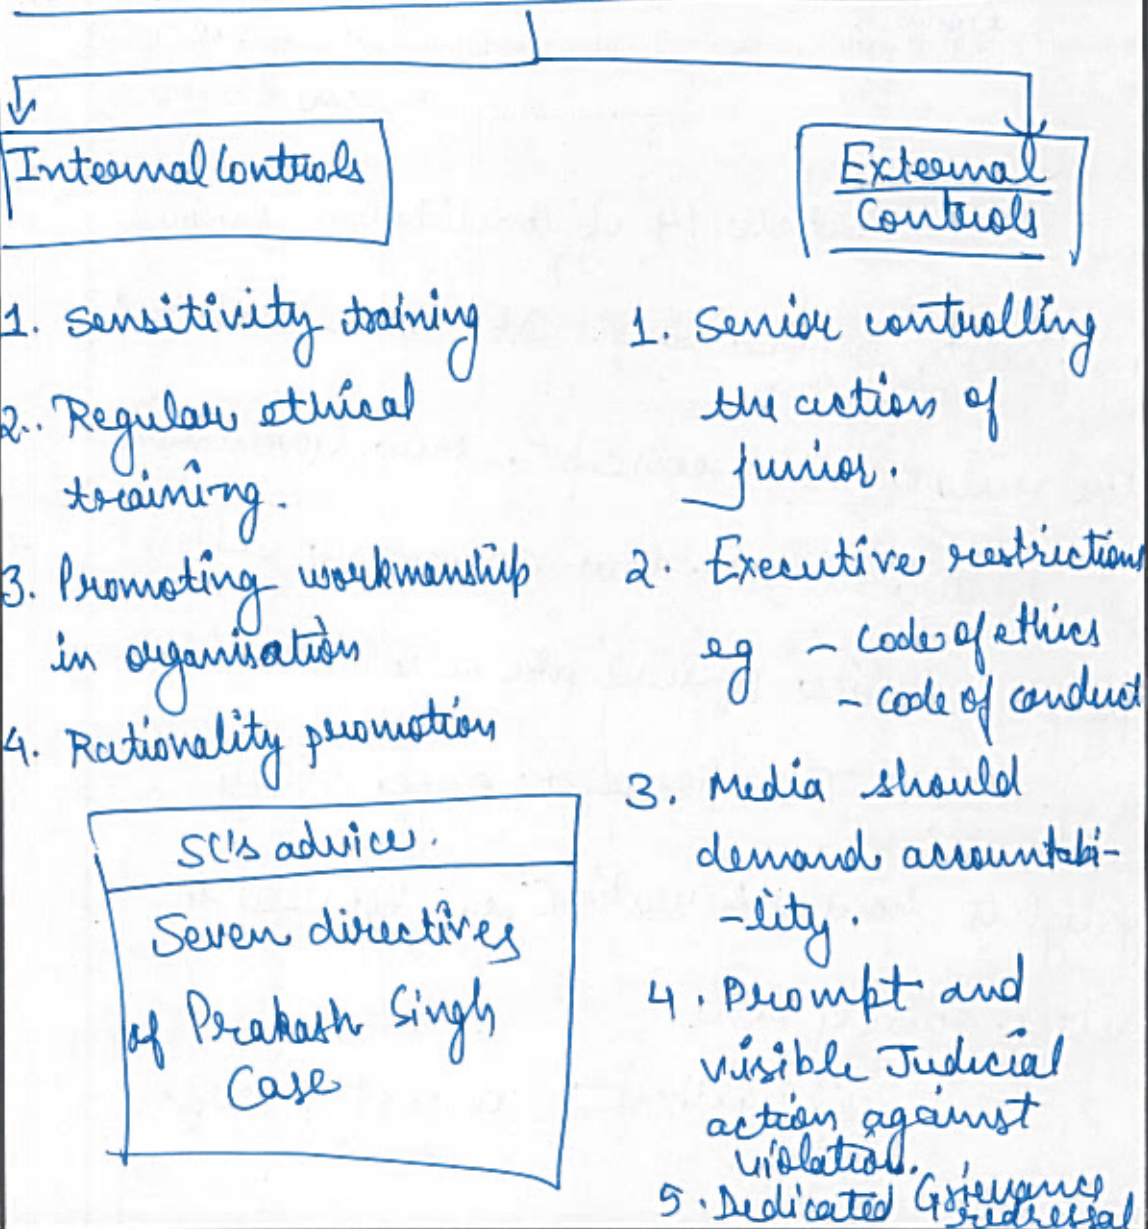 Internal Controls
1. Sensitivity training
2. Regular ethical
training.
3. Promoting workmanship
in organisation
4. Rationality promotion
SC's advice.
Seven directives
of Prakash Singh
Case
External
Controls
1. Senior controlling
the actions of
junior.
2. Executive restrictions
eg - code of ethics
- code of conduct
3. Media should
demand accountabi-
-lity.
4. Prompt and
visible Judicial
action against
violation.
5. Dedicated Grievance
redressal